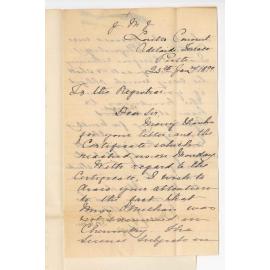 J. M. J.
Loreto Convent
Adelaide Terrace
Perth
25th Jan
To the Registrar
Dear Sir
Many thanks
for your letter and the
Certificate which
reached us on Monday.
With regard to the
Certificate, I wish to
draw your attention
to the fact that
was
not examined in
Chemistry the
Science Subjects